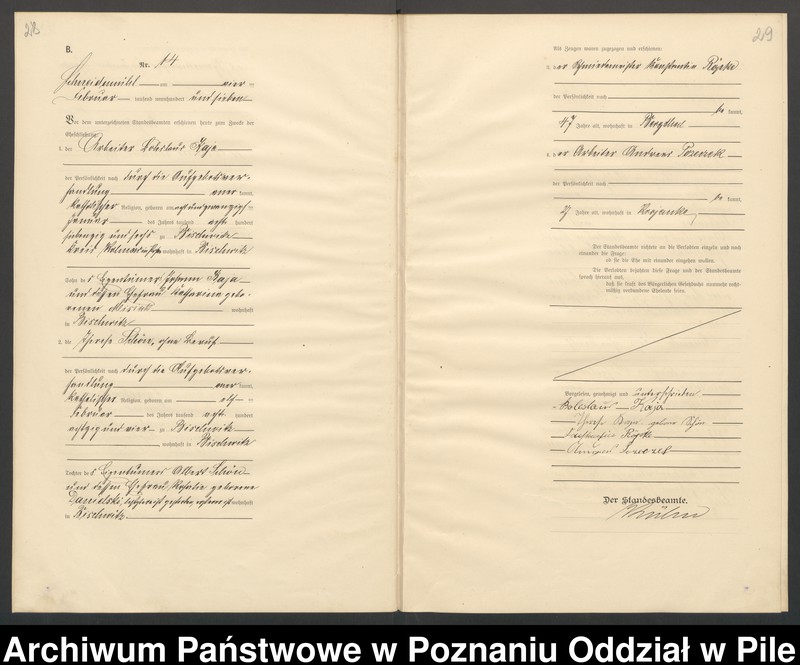 28
B.
Nr. 14
Schneidemühl am vier ten
Februar tausend neunhundert und sieben
Vor dem unterzeichneten Standesbeamten erschienen heute zum Zwecke der
Eheschließung:
1. der Arbeiter Boleslaus Kaja
der Persönlichkeit nach durch die Aufgebotsver-
handlung aner kannt,
katholischer Religion, geboren am acht und zwanzigsten
Januar des Jahres tausend acht hundert
siebenzig und sechs zu Bischwitz
Kreis wohnhaft in Bischwitz
Sohn des Eigentümers Johann Kaja
und dessen Ehefrau Katharina gebo-
renen wohnhaft
in Bischwitz
2. die Schön, ohne Beruf
der Persönlichkeit nach durch die Aufgebotsver-
handlung aner kannt,
katholischer Religion, geboren am elf ten
Februar des Jahres tausend acht hundert
achtzig und vier zu Bischwitz
wohnhaft in Bischwitz
Tochter des Eigentümers Albert Schön
und dessen Ehefrau Rosalie geborene
Danielski, wohnhaft
in Bischwitz
29
Als Zeugen waren zugezogen und erschienen:
3. der Schmiedemeister Konstantin Röpke
der Persönlichkeit nach
be kannt,
47 Jahre alt, wohnhaft in
4. der Arbeiter Andreas
der Persönlichkeit nach
be kannt,
Jahre alt, wohnhaft in Krojanke
Der Standesbeamte richtete an die Verlobten einzeln und nach
einander die Frage:
ob sie die Ehe mit einander eingehen wollen.
Die Verlobten bejahten diese Frage und der Standesbeamte
sprach hierauf aus,
daß sie kraft des Bürgerlichen Gesetzbuchs nunmehr recht-
mäßig verbundene Eheleute seien.
Vorgelesen, genehmigt und unterschrieben
Boleslaus Kaja
Kaja geborene Schön
Konstantin Röpke
Der Standesbeamte.
Archiwum Państwowe w Poznaniu Oddział w Pile